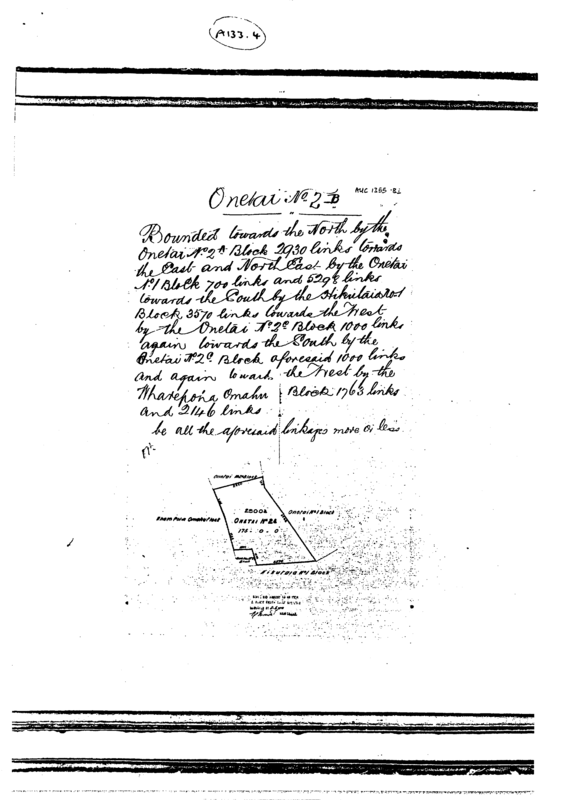 A133.4
AUC 1255
Onetai No 2 B
Bounded towards the North by the
Onetai No 2A Block 2930 links towards
the East and North East by the Onetai
No 1 Block 700 links and 5298 links
towards the South by the Hikutaia No 1
Block 3570 links towards the West
by the Onetai No 2C Block 1000 links
again towards the South by the
Onetai No 2C Block aforesaid 1000 links
and again toward the West by the
Wharepoha Omahu Block 1763 links
and 2146 links
be all the aforesaid linkages more or less
Onetai No 1 Block
Onetai No 2A
175 . 0 . 0
Hikutaia No 1 Block